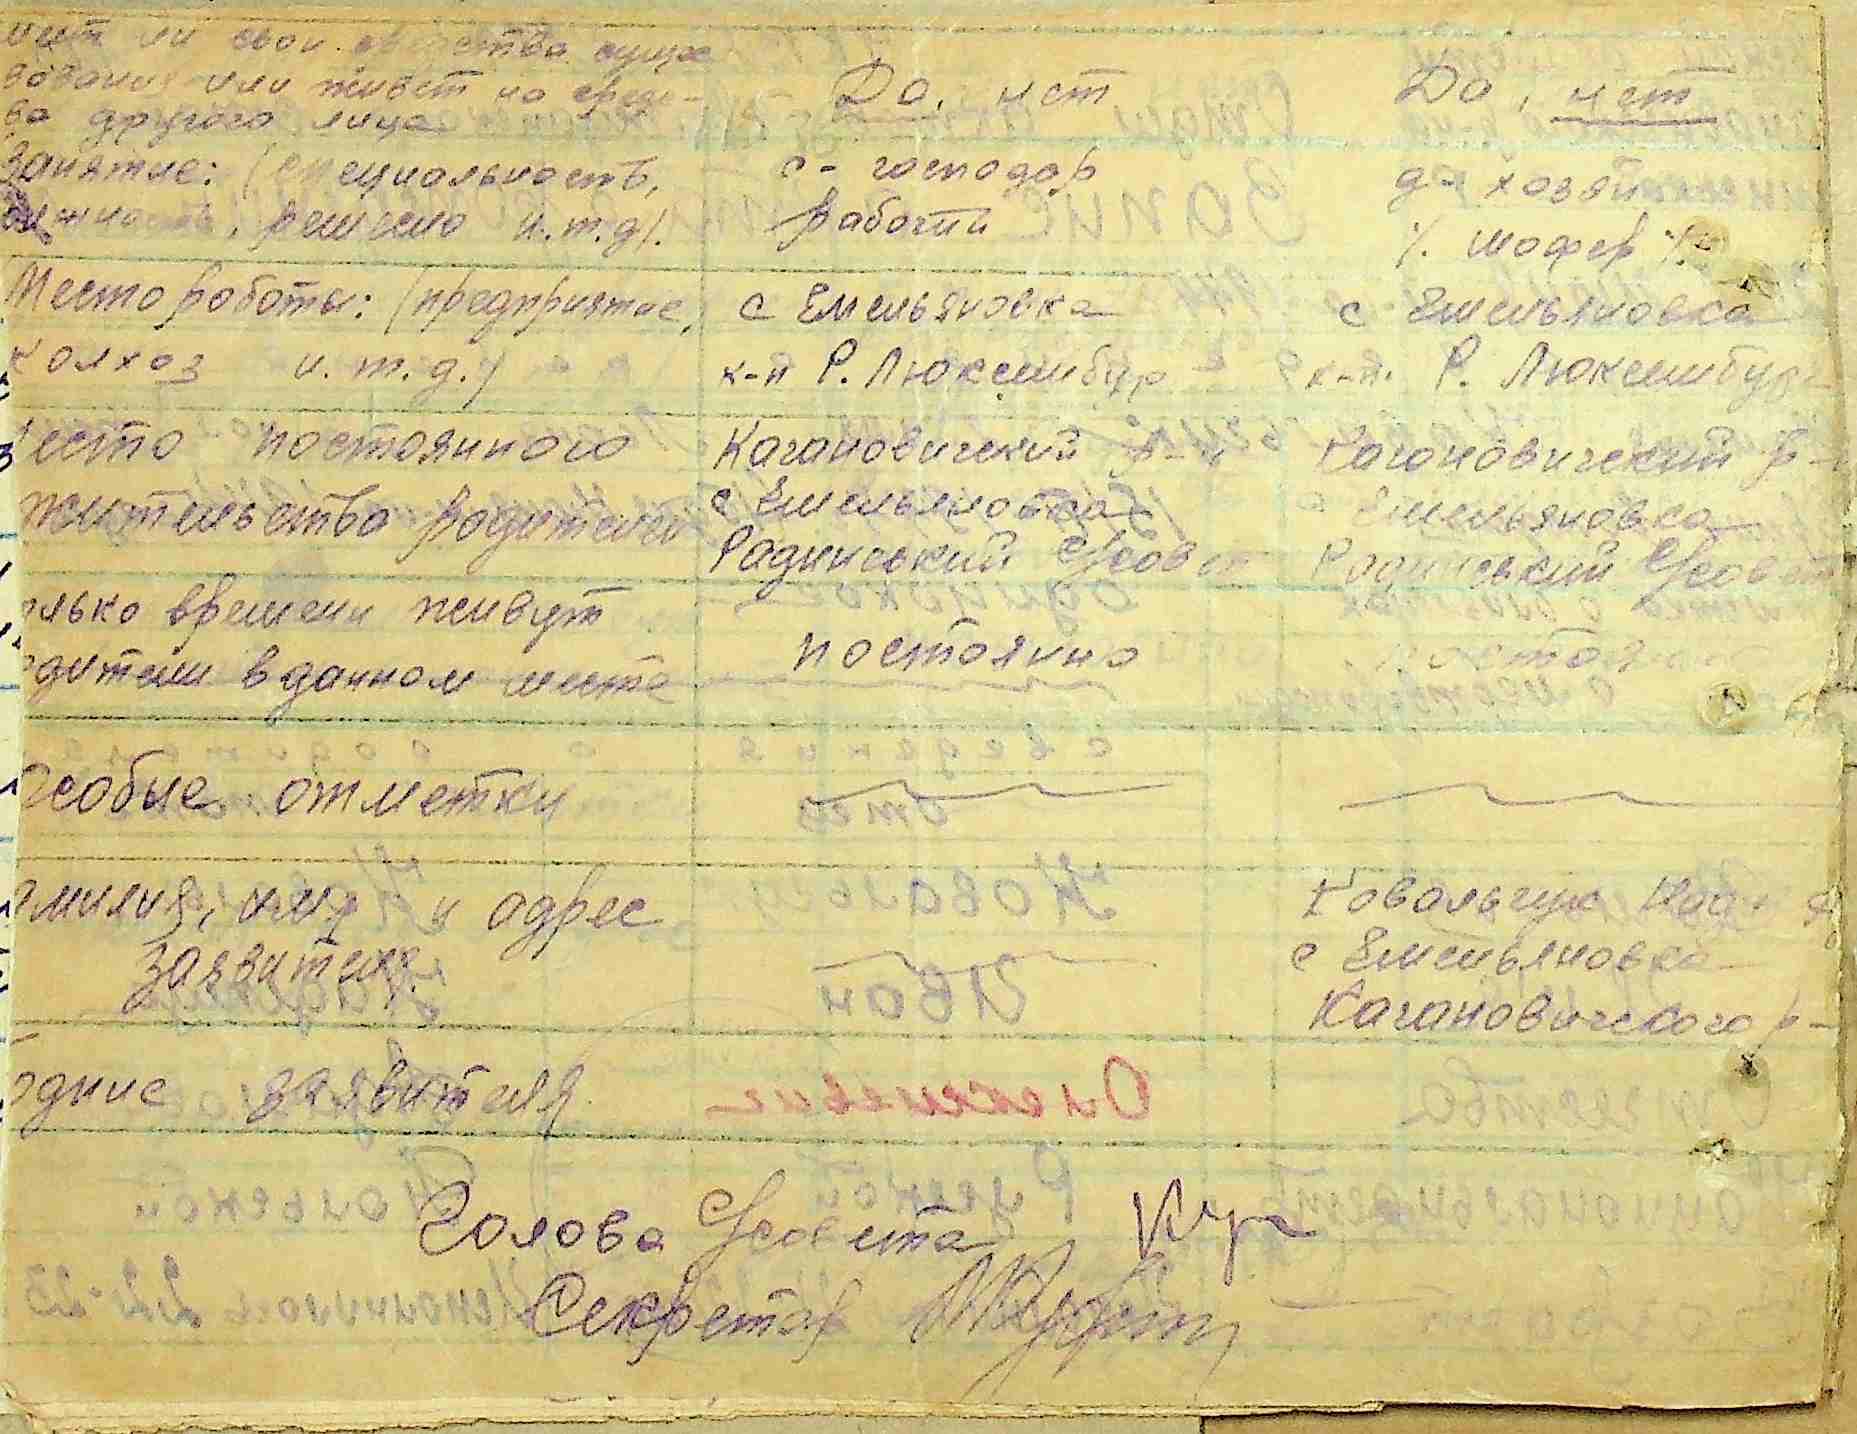 ли свои средства суще
вования или живет на сред-
ва другого лица
Да, нет
Да, нет
Занятие: (специальность,
ремесло и.т.д).
с-господар
рабочий
д-хозяйка
Место работы: (предприятие,
колхоз и.т.д.)
с Емельяновка
к-п Р. Люксембур
с Емельяновка
к-п. Р. Люксембург
место постоянного
жительства родителей
Кагановичский р-н
с Емельяновка
Радинський С/совет
Кагановичский р-
с Емельяновка
Радинський С/совет
олько времени живут
одители в данном месте
постоянно
Особые отметки
амилия, имя и адрес
заявителя.
Ковальчук Над
с Емельяновка
Кагановичского р-
одпис заявителя
Голова С/совета
Секретар